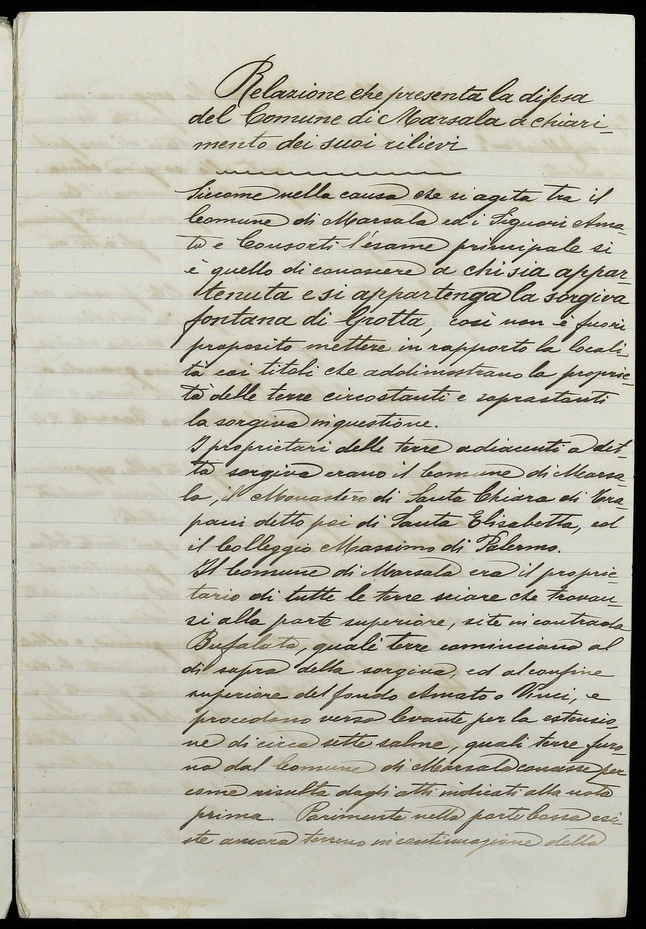 Relazione che presenta la difesa
del Comune di Marsala a chiari-
mento dei suoi rilievi
Siccome nella causa che si agita tra il
Comune di Marsala ed i Signori Ama-
to e Consorti l'esame principale si
è quello di conoscere a chi sia appar-
tenuta e si appartenga la sorgiva
fontana di Grotta, così non è fuori
proposito mettere in rapporto la locali-
tà coi titoli che addimostrano la proprie-
tà delle terre circostanti e soprastanti
la sorgiva in questione.
I proprietari delle terre adiacenti a det-
ta sorgiva erano il Comune di Marsa-
la, il Monastero di Santa Chiara di Tra-
pani detto poi di Santa Elisabetta, ed
il Colleggio Massimo di Palermo.
Il Comune di Marsala era il proprie-
tario di tutte le terre sciare che trovan-
si alla parte superiore, site in contrada
Bufalata, quali terre cominciano al
di sopra della sorgiva, ed al confine
superiore del fondo Amato o Vinci, e
procedono verso levante per la estensio-
ne di circa sette salme, quali terre furo-
no dal Comune di Marsala concesse per
come risulta dagli atti indicati alla nota
prima. Parimente nella parte bassa esi-
ste ancora terreno in continuazione della